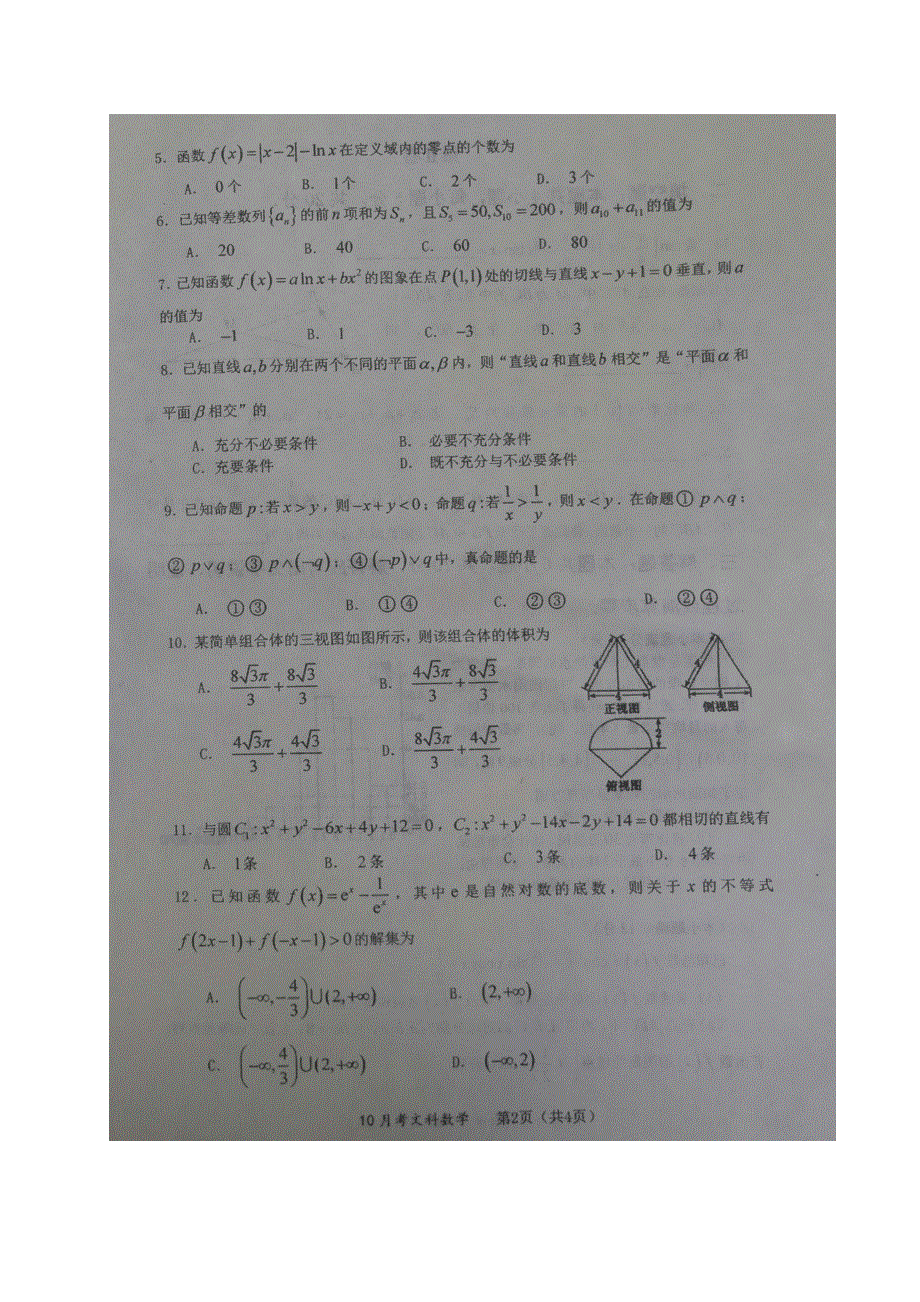 5. 函数 f(x)=|x−2|−ln x 在定义域内的零点的个数为
A. 0个 B. 1个 C. 2个 D. 3个
6. 已知等差数列{aₙ}的前n项和为Sₙ，且S₅=50,S₁₀=200，则a₁₀+a₁₁的值为
A. 20 B. 40 C. 60 D. 80
7. 已知函数 f(x)=a ln x+bx² 的图象在点P(1,1)处的切线与直线x−y+1=0垂直，则a
的值为
A. −1 B. 1 C. −3 D. 3
8. 已知直线a,b分别在两个不同的平面α,β内，则“直线a和直线b相交”是“平面α和
平面β相交”的
A. 充分不必要条件 B. 必要不充分条件
C. 充要条件 D. 既不充分与不必要条件
9. 已知命题p:若x>y，则−x+y<0；命题q:若1/x>1/y，则x<y．在命题① p∧q；
② p∨q；③ p∧(¬q)；④(¬p)∨q中，真命题的是
A. ①③ B. ①④ C. ②③ D. ②④
10. 某简单组合体的三视图如图所示，则该组合体的体积为
A. 8√3π/3+8√3/3 B. 4√3π/3+8√3/3
4 4 4 正视图
4 4 侧视图
C. 4√3π/3+4√3/3 D. 8√3π/3+4√3/3
2
俯视图
11. 与圆C₁:x²+y²−6x+4y+12=0，C₂:x²+y²−14x−2y+14=0都相切的直线有
A. 1条 B. 2条 C. 3条 D. 4条
12. 已知函数 f(x)=eˣ−1/eˣ，其中e是自然对数的底数，则关于x的不等式
f(2x−1)+f(−x−1)>0的解集为
A. (−∞,−4/3)∪(2,+∞) B. (2,+∞)
C. (−∞,4/3)∪(2,+∞) D. (−∞,2)
10月考文科数学 第2页（共4页）